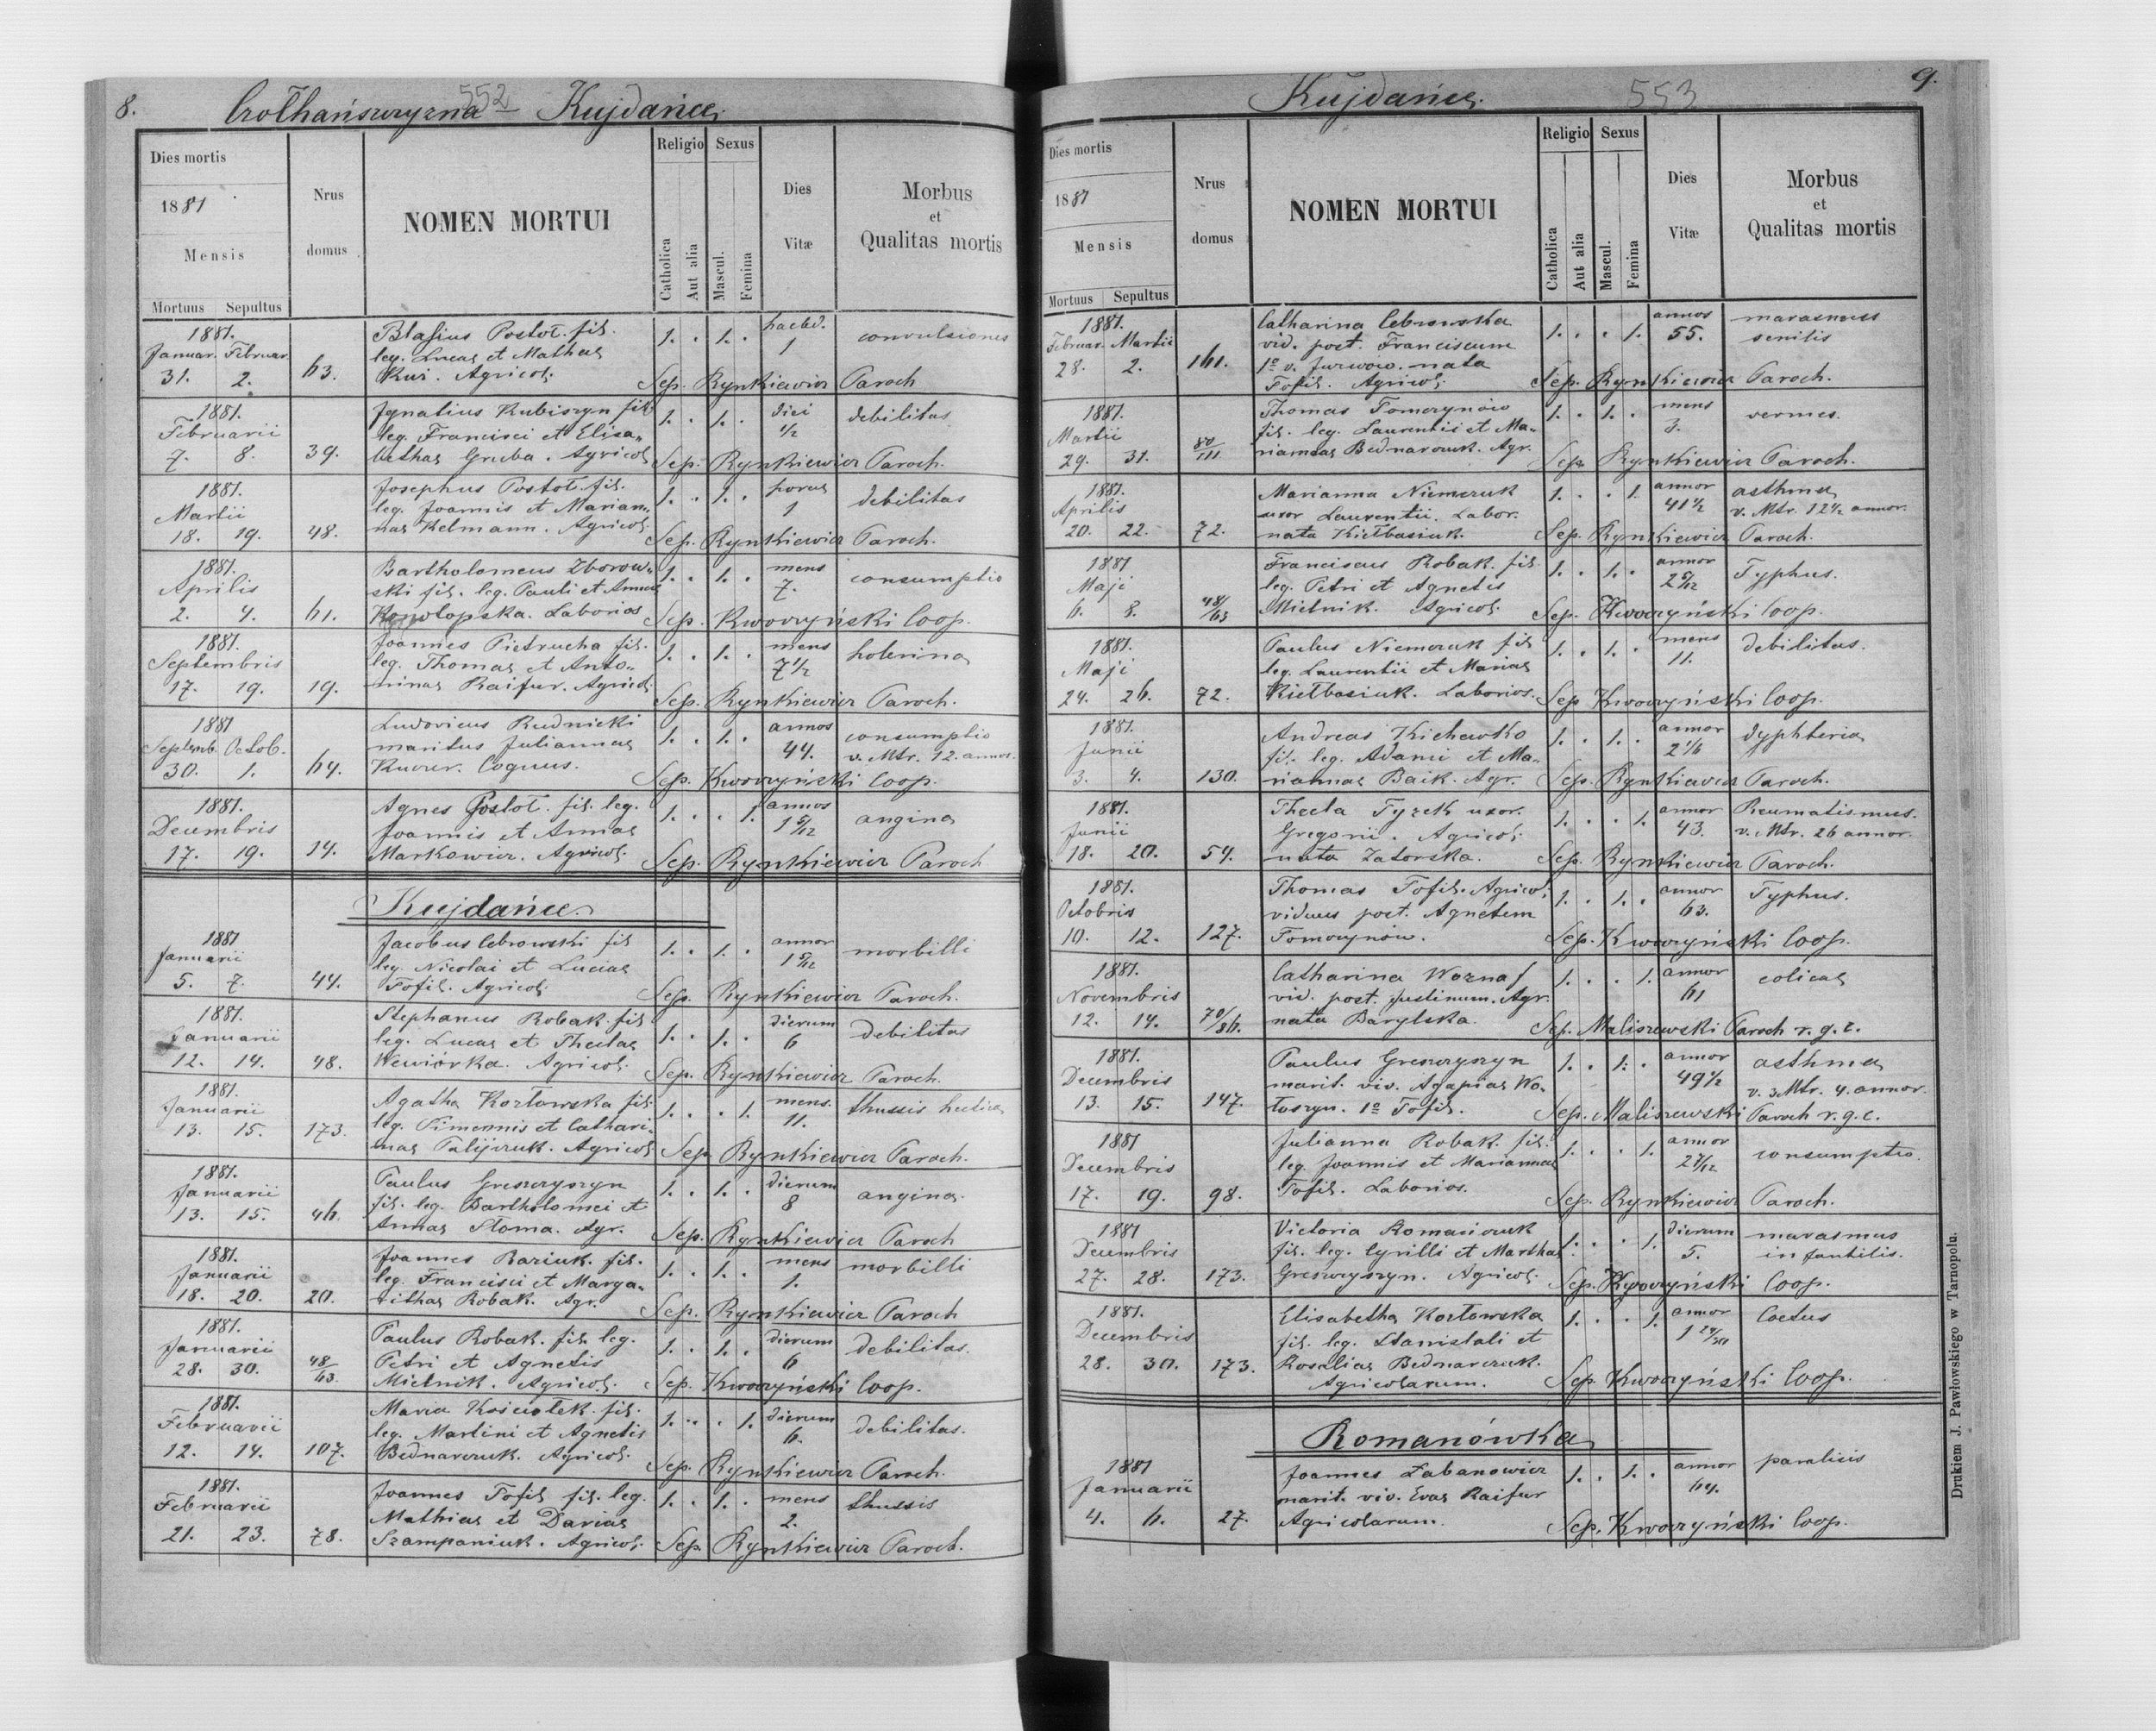 8.
552
Czołhańszczyzna - Kujdańce.
Dies mortis
1881
Mensis
Mortuus Sepultus
Nrus domus
NOMEN MORTUI
Religio
Catholica
Aut alia
Sexus
Mascul.
Femina
Dies Vitæ
Morbus
et
Qualitas mortis
1881. Blasius Postoł. fil. 1. . 1. . convulsiones
Januar. Februar. leg. Lucae et Mathae 1
31. 2. 63. Agricol. Sep. Rynkiewicz Paroch
1881. Ignatius Kubiszyn fil. 1. . 1. . diei debilitas
Februarii leg. Francisci et Elisa- 1/2
7. 8. 39. bethae Gruba. Agricol. Sep. Rynkiewicz Paroch.
1881. Josephus Postoł. fil. 1. . 1. . horae debilitas
Martii leg. Joannis et Marian- 1
18. 19. 48. nae Kelmann. Agricol. Sep. Rynkiewicz Paroch.
1881. Bartholomeus Zborow- 1. . 1. . mens consumptio
Aprilis ski fil. leg. Pauli et Annae 7.
2. 4. 61. Konotopska. Laborios Sep. Kwoczyński Coop.
1881. Joannes Pietrucha fil. 1. . 1. . mens holerina
Septembris leg. Thomae et Anto- 7 1/2
17. 19. 19. ninae Raifur. Agricol. Sep. Rynkiewicz Paroch.
1881 Ludovicus Rudnicki 1. . 1. . annos consumptio
Septemb. Octob. maritus Juliannae 44. v. Mtr. 12. annos.
30. 1. 64. Coquus. Sep. Kwoczyński Coop.
1881. Agnes Postoł. fil. leg. 1. . . 1. annos angina
Decembris Joannis et Annae 1 5/12
17. 19. 14. Markowicz. Agricol. Sep. Rynkiewicz Paroch
Kujdańce.
1881 Jacobus Cebrowski fil 1. . 1. . annor morbilli
Januarii leg. Nicolai et Luciae 1 5/12
5. 7. 44. Tofil. Agricol. Sep. Rynkiewicz Paroch.
1881. Stephanus Robak. fil 1. . 1. . dierum debilitas
Januarii leg. Lucae et Theclae 6
12. 14. 48. Wewiórka. Agricol. Sep. Rynkiewicz Paroch.
1881. Agatha Kozłowska fil. 1. . . 1. mens. thussis hectica
Januarii leg. et Cathari- 11.
13. 15. 173. nae Palijczuk. Agricol Sep. Rynkiewicz Paroch.
1881. Paulus Greszczyszyn 1. . 1. . dierum angina.
Januarii fil. leg. Bartholomei et 8
13. 15. 46. Annae Słoma. Agr. Sep. Rynkiewicz Paroch
1881. Joannes Baziuk. fil. 1. . 1. . mens morbilli
Januarii leg. Francisci et Marga- 1.
18. 20. 20. rithae Robak. Agr. Sep. Rynkiewicz Paroch
1881. Paulus Robak. fil. leg. 1. . 1. . dierum debilitas.
Januarii Petri et Agnetis 6
28. 30. 48/63. Mielnik. Agricol. Sep. Kwoczyński Coop.
1881. Maria Kościołek. fil. 1. . . 1. dierum debilitas.
Februarii leg. Martini et Agnetis 6.
12. 14. 107. Bednarczuk. Agricol. Sep. Rynkiewicz Paroch.
1881. Joannes Tofil fil. leg. 1. . 1. . mens thussis
Februarii Mathiae et Dariae 2.
21. 23. 78. Szampaniuk. Agricol. Sep. Rynkiewicz Paroch.
Kujdańce.
553
9.
Dies mortis
1881
Mensis
Mortuus Sepultus
Nrus domus
NOMEN MORTUI
Religio
Catholica
Aut alia
Sexus
Mascul.
Femina
Dies Vitæ
Morbus
et
Qualitas mortis
1881. Catharina Cebrowska 1. . . 1. annos marasmus
Februar. Martii vid. post. Franciscum 55. senilis
28. 2. 161. 1º v. Jurwów. nata
Tofil. Agricol. Sep. Rynkiewicz Paroch.
1881. Thomas Tomczynów 1. . 1. . mens vermes.
Martii fil. leg. Laurentii et Ma- 3.
29. 31. 80/111 riannae Bednarczuk. Agr. Sep. Rynkiewicz Paroch.
1881. Marianna Niemczuk 1. . . 1. annor asthma
Aprilis uxor Laurentii. Labor. 41 1/2 v. Mtr. 12 1/2 annor.
20. 22. 72. nata Kiełbasiuk. Sep. Rynkiewicz Paroch.
1881 Franciscus Robak. fil. 1. . 1. . annor Typhus.
Maji leg. Petri et Agnetis 2 5/12
6. 8. 48/63 Mielnik. Agricol. Sep. Kwoczyński Coop.
1881. Paulus Niemczuk fil 1. . 1. . mens debilitas.
Maji leg. Laurentii et Mariae 11.
24. 26. 72. Kiełbasiuk. Laborios. Sep Kwoczyński Coop.
1881. Andreas Kichawko 1. . 1. . annor dyphteria
Junii fil. leg. Adami et Ma- 2 1/6
3. 4. 130. riannae Baik. Agr. Sep. Rynkiewicz Paroch.
1881. Thecla Tyzek uxor. 1. . . 1. annor Reumatismus.
Junii Gregorii. Agricol. 43. v. Mtr. 26 annor.
18. 20. 54. nata Zatorska. Sep. Rynkiewicz Paroch.
1881. Thomas Tofil. Agricol. 1. . 1. . annor Typhus.
Octobris viduus post. Agnetem 63.
10. 12. 127. Tomczynów. Sep. Kwoczyński Coop.
1881. Catharina Wozna 1. . . 1. annor colica
Novembris vid. post. Justinum. Agr. 61
12. 14. 70/86. nata Barylska. Sep. Maliszewski Paroch r. g. c.
1881. Paulus Greszczyszyn 1. . 1. . annor asthma
Decembris marit. viv. Agapiae Wo- 49 1/2 v. 3 Mtr. 4. annor.
13. 15. 147. łoszyn. 1º Tofil. Sep. Maliszewski Paroch r. g. c.
1881 Julianna Robak. fil. 1. . . 1. annor consumptio.
Decembris leg. Joannis et Mariannae 2 7/12
17. 19. 98. Tofil. Laborios. Sep. Rynkiewicz Paroch.
1881 Victoria Romańczuk 1. . . 1. dierum marasmus
Decembris fil. leg. Cyrilli et Marthae 5. infantilis.
27. 28. 173. Greszczyszyn. Agricol. Sep. Kwoczyński Coop.
1881. Elisabetha Kozłowska 1. . . 1. annor
Decembris fil. leg. Stanislai et
28. 30. 173. Rosaliae Bednarczuk.
Agricolarum. Sep. Kwoczyński Coop.
Romanówka
1881 Joannes Łabanowicz 1. . 1. . annor paralisis
Januarii marit. viv. Evae Raifur 64.
4. 6. 27. Agricolarum. Sep. Kwoczyński Coop.
Drukiem J. Pawłowskiego w Tarnopolu.